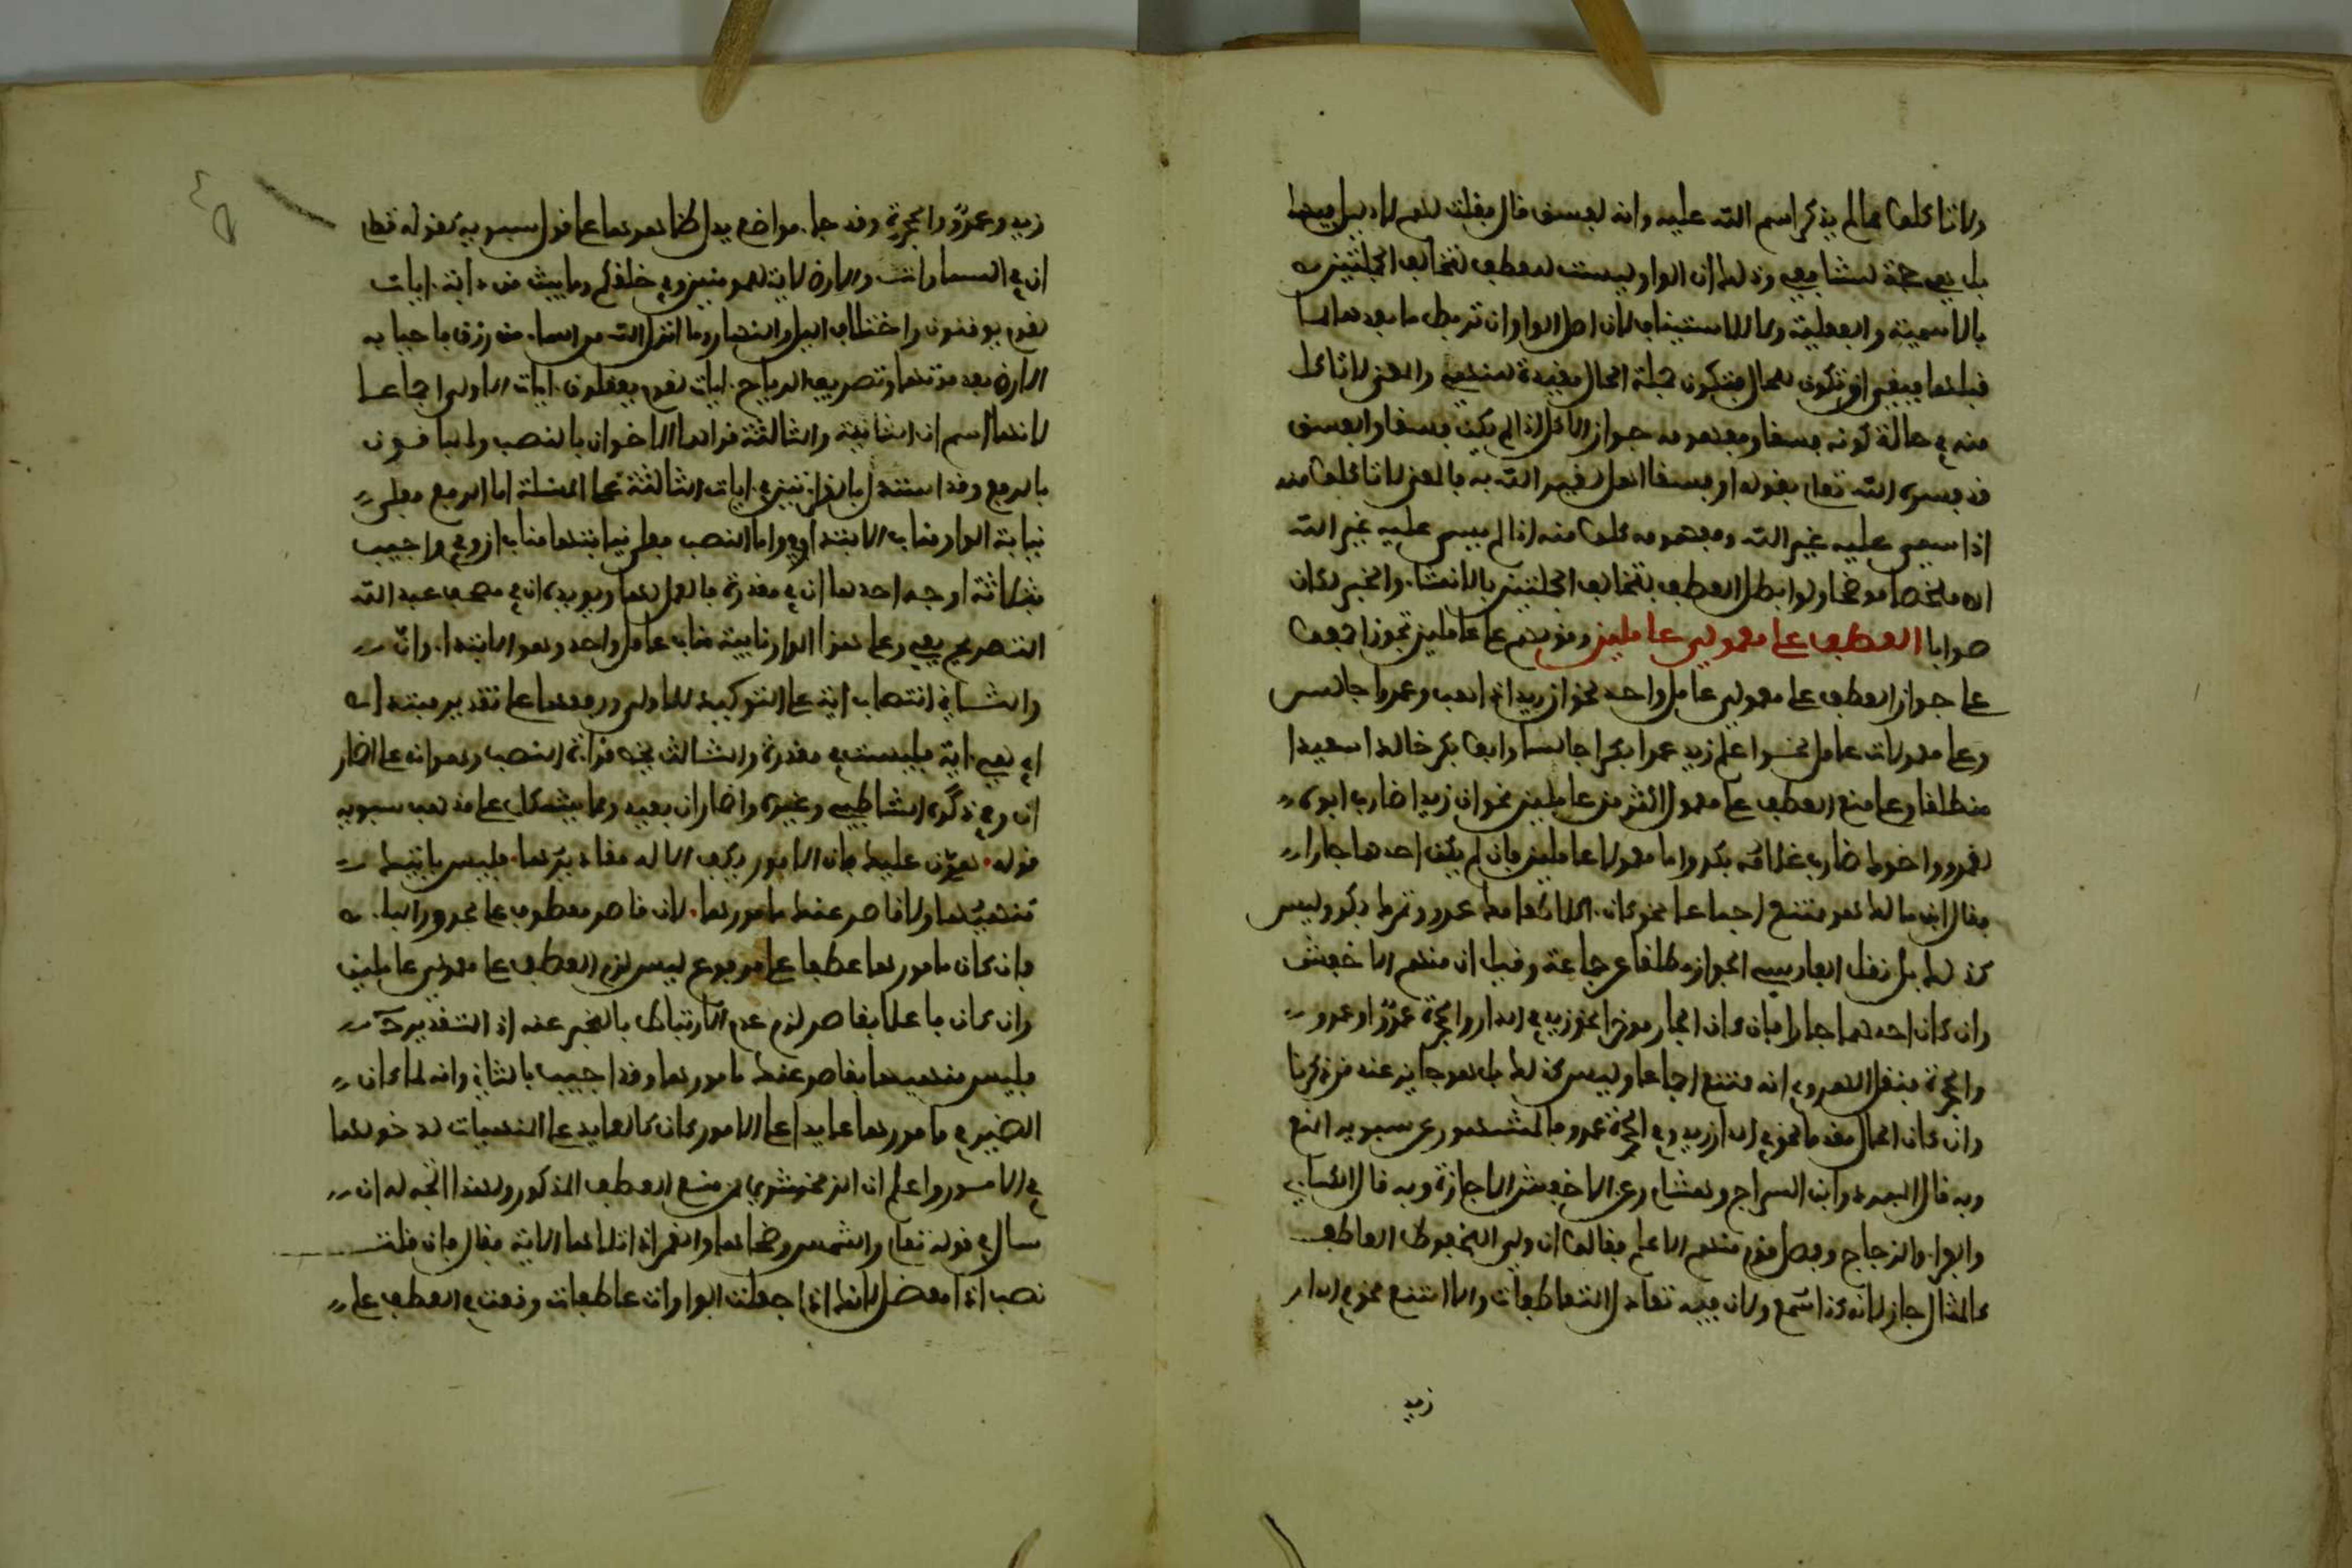 ولا تاكلوا مما لم يذكر اسم الله عليه وانه لفسق فال فقلت لهم لا دليل فيها
بل هي حجة للشافعي وذلك ان الواو ليست للعطف لتخالف الجملتين
بالاسمية والفعلية ولا للاستيناف لان اصل الواو ان تربط ما بعدها بما
قبلها فبقي ان تكون للحال فتكون جملة الحال مفيدة للنهي والمعنى لا تاكلوا
منه في حالة كونه فسقا ومفهومه جواز الاكل اذا لم يكن فسقا والفسق
قد فسره الله تعلى بقوله او فسقا اهل لغير الله به فالمعنى لا تاكلوا منه
اذا سمي عليه غير الله ومفهومه كلوا منه اذا لم يسم عليه غير الله
اه ملخصا موضحا ولو ابطل العطف بتخالف الجملتين بالانشاء والخبر لكان
صوابا العطف على معمولي عاملين وقولهم على عاملين تجوز اجمعوا
على جواز العطف على معمولي عامل واحد نحو ان زيدا ذاهب وعمرا جالس
وعلى معمولات عامل نحو اعلم زيد عمرا بكرا جالسا وابو بكر خالدا سعيدا
منطلقا وعلى منع العطف على معمول اكثر من عاملين نحو ان زيدا ضارب ابوه
لعمرو واخاك غلامه بكر واما معمولا عاملين فان لم يكن احدهما جارا
فقال ابن مالك هو ممتنع اجماعا نحو كان اكلا طعامك عمرو وتمرك بكر وليس
كذلك بل نقل الفارسي الجواز مطلقا عن جماعة وقيل ان منهم الاخفش
وان كان احدهما جارا فان كان الجار موخرا نحو زيد في الدار والحجرة عمرو او وعمرو
والحجرة فنقل المهدوي انه ممتنع اجماعا وليس كذلك بل هو جايز عند من ذكرنا
وان كان الجار مقدما نحو في الدار زيد والحجرة عمرو فالمشهور عن سيبويه المنع
وبه قال المبرد وابن السراج وهشام وعن الاخفش الاجازة وبه قال الكسائي
والفراء والزجاج وفصل قوم منهم الاعلم فقالوا ان ولي المخفوض العاطف
كالمثال جاز لانه كذا سمع ولان فيه تعادل المتعاطفات والا امتنع نحو في الدار
زيد
زيد وعمرو الحجرة وقد جاء مواضع يدل ظاهرها على قول سيبويه كقوله تعلى
ان في السماوات والارض لايات للمومنين وفي خلقكم وما يبث من دابة ايات
لقوم يوقنون واختلاف اليل والنهار وما انزل الله من السماء من رزق فاحيا به
الارض بعد موتها وتصريف الرياح ايات لقوم يعقلون ايات الاولى اجماعا
لانها اسم ان والثانية والثالثة قراهما الاخوان بالنصب والباقون
بالرفع وقد استدل بالقراءتين في ايات الثالثة على المسئلة اما الرفع فعلى
نيابة الواو مناب الابتداء وفي واما النصب فعلى نيابتها مناب ان وفي واجيب
بثلاثة اوجه احدها ان في مقدرة فالعمل لها ويويده ان في مصحف عبد الله
التصريح بفي وعلى هذا الواو نايبة مناب عامل واحد وهو الابتداء وان
والثاني انتصاب اية على التوكيد للاولى ورفعها على تقدير مبتدا
اي هي اية فليست في مقدرة والثالث يخص قراءة النصب وهو انه على اضمار
ان وفي ذكره الشاطبي وغيره واضمار ان بعيد ومما يشكل على مذهب سيبويه
قوله هون عليك فان الامور بكف الاله مقاديرها فليس باتيك
منهيها ولا قاصر عنك مامورها لان قاصر معطوف على مجرور الباء
فان كان مامورها عطفا على مرفوع ليس لزم العطف على معمولي عاملين
وان كان فاعلا بقاصر لزم عدم الارتباط بالمخبر عنه اذ التقدير ح
فليس منهيها بقاصر عنك مامورها وقد اجيب بالثاني وانه لما كان
الضمير في مامورها عايدا على الامور كان كالعايد على المنهيات لدخولها
في الامور واعلم ان الزمخشري ممن منع العطف المذكور ولهذا اتجه له ان
سال في قوله تعلى والشمس وضحاها والقمر اذا تلاها الاية فقال فان قلت
نصب اذا معضل لانك اذا جعلت الواوات عاطفات وقعت في العطف على